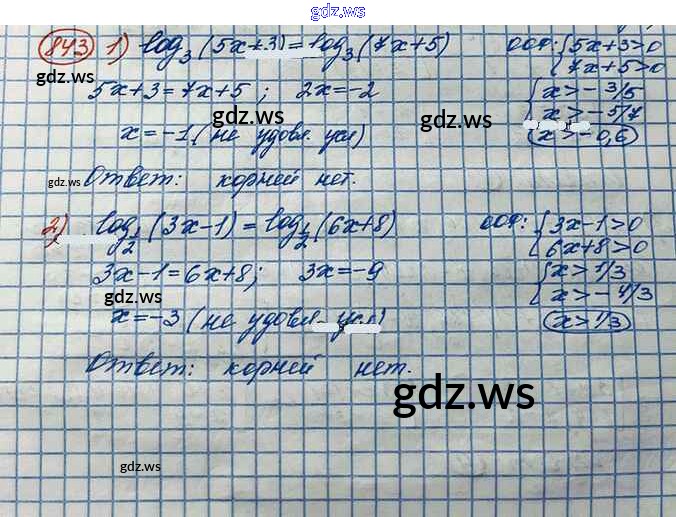 gdz.ws
843 1) log₃(5x+3)=log₃(7x+5) ООФ: {5x+3>0
7x+5>0
gdz.ws
5x+3=7x+5; 2x=-2 {x>-3/5
x>-5/7
gdz.ws gdz.ws
x=-1 (не удовл. усл) (x>-0,6)
gdz.ws Ответ: корней нет.
2) log½(3x-1)=log½(6x+8) ООФ: {3x-1>0
6x+8>0
3x-1=6x+8; 3x=-9 {x>1/3
x>-4/3
gdz.ws
x=-3 (не удовл. усл) (x>1/3)
Ответ: корней нет.
gdz.ws
gdz.ws